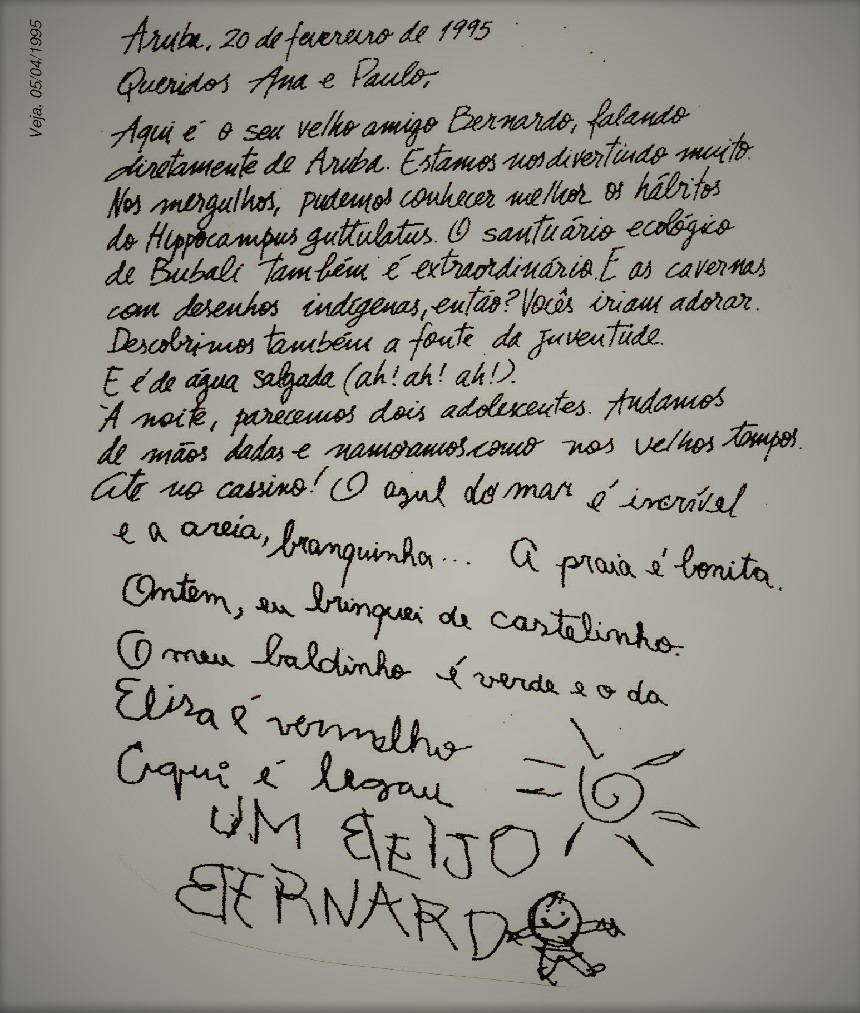 Veja, 05/04/1995
Aruba, 20 de fevereiro de 1995
Queridos Ana e Paulo,
Aqui é o seu velho amigo Bernardo, falando
diretamente de Aruba. Estamos nos divertindo muito.
Nos mergulhos, pudemos conhecer melhor os hábitos
do Hippocampus guttulatus. O santuário ecológico
de Bubali também é extraordinário. E as cavernas
com desenhos indígenas, então? Vocês iriam adorar.
Descobrimos também a fonte da juventude.
E é de água salgada (ah! ah! ah!).
À noite, parecemos dois adolescentes. Andamos
de mãos dadas e namoramos como nos velhos tempos.
Até no cassino! O azul do mar é incrível
e a areia, branquinha... A praia é bonita.
Ontem, eu brinquei de castelinho.
O meu baldinho é verde e o da
Elisa é vermelho
Aqui é legau
UM BEIJO
BERNARDO